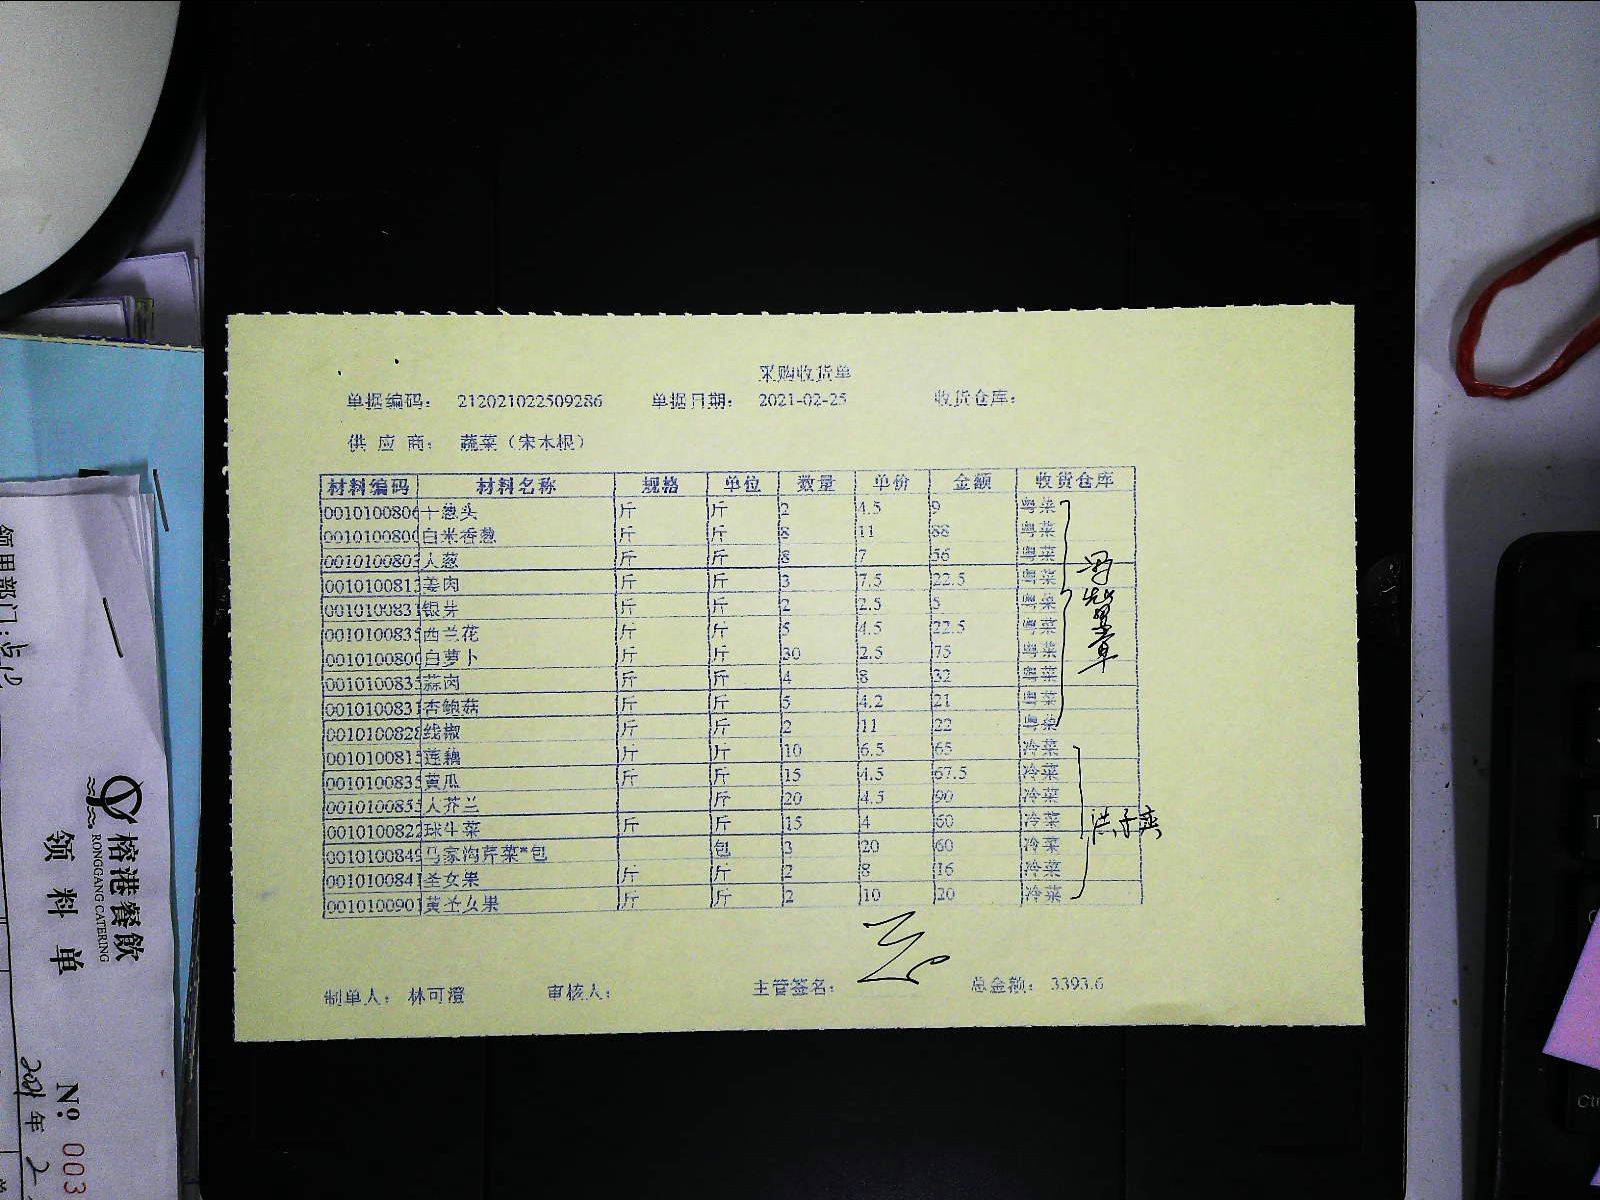 采购收货单
单据编码： 212021022509286 单据日期： 2021-02-25 收货仓库：
供 应 商： 蔬菜（宋木根）
材料编码 材料名称 规格 单位 数量 单价 金额 收货仓库
0010100806 干葱头 斤 斤 2 4.5 9 粤菜
001010080 白米香葱 斤 斤 8 11 88 粤菜
001010080 大葱 斤 斤 8 7 56 粤菜
0010100813 姜肉 斤 斤 3 7.5 22.5 粤菜
0010100831 银芽 斤 斤 2 2.5 5 粤菜
0010100835 西兰花 斤 斤 5 4.5 22.5 粤菜
001010080 白萝卜 斤 斤 30 2.5 75 粤菜
0010100835 蒜肉 斤 斤 4 8 32 粤菜
0010100831 杏鲍菇 斤 斤 5 4.2 21 粤菜
0010100828 线椒 斤 斤 2 11 22 粤菜
0010100815 莲藕 斤 斤 10 6.5 65 冷菜
0010100835 黄瓜 斤 斤 15 4.5 67.5 冷菜
0010100855 大芥兰 斤 20 4.5 90 冷菜
0010100822 球生菜 斤 斤 15 4 60 冷菜
0010100849 马家沟芹菜*包 包 3 20 60 冷菜
0010100841 圣女果 斤 斤 2 8 16 冷菜
0010100901 黄圣女果 斤 斤 2 10 20 冷菜
洪子爽
制单人： 林可澄 审核人： 主管签名： 总金额： 3393.6
领用部门：
榕港餐飲
RONGGANG CATERING
领 料 单
№ 003
2021 年 2
Ctrl